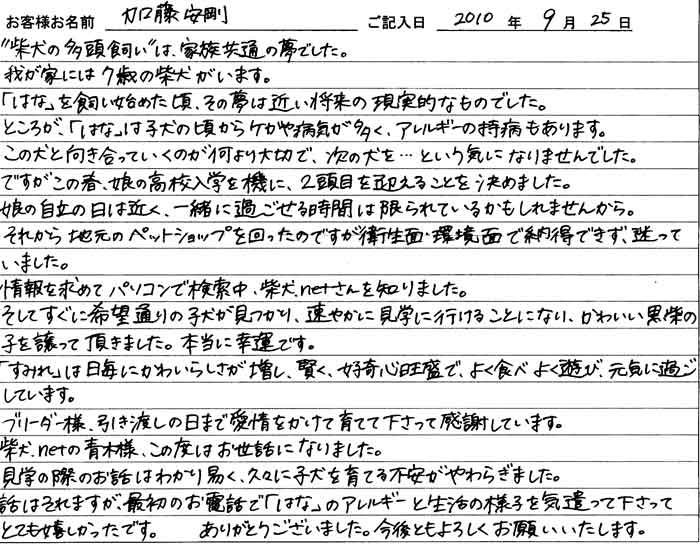 お客様お名前 加藤安剛 ご記入日 2010 年 9 月 25 日
"柴犬の多頭飼い"は、家族共通の夢でした。
我が家には7歳の柴犬がいます。
「はな」を飼い始めた頃、その夢は近い将来の現実的なものでした。
ところが、「はな」は子犬の頃からケガや病気が多く、アレルギーの持病もあります。
この犬と向き合っていくのが何より大切で、次の犬を…という気になりませんでした。
ですがこの春、娘の高校入学を機に、2頭目を迎えることを決めました。
娘の自立の日は近く、一緒に過ごせる時間は限られているかもしれませんから。
それから地元のペットショップを回ったのですが衛生面・環境面で納得できず、迷って
いました。
情報を求めてパソコンで検索中、柴犬.netさんを知りました。
そしてすぐに希望通りの子犬が見つかり、速やかに見学に行けることになり、かわいい黒柴の
子を譲って頂きました。本当に幸運です。
「すみれ」は日毎にかわいらしさが増し、賢く、好奇心旺盛で、よく食べよく遊び、元気に過ご
しています。
ブリーダー様、引き渡しの日まで愛情をかけて育てて下さって感謝しています。
柴犬.netの青木様、この度はお世話になりました。
見学の際のお話はわかり易く、久々に子犬を育てる不安がやわらぎました。
話はそれますが、最初のお電話で「はな」のアレルギーと生活の様子を気遣って下さって
とても嬉しかったです。 ありがとうございました。今後ともよろしくお願いいたします。